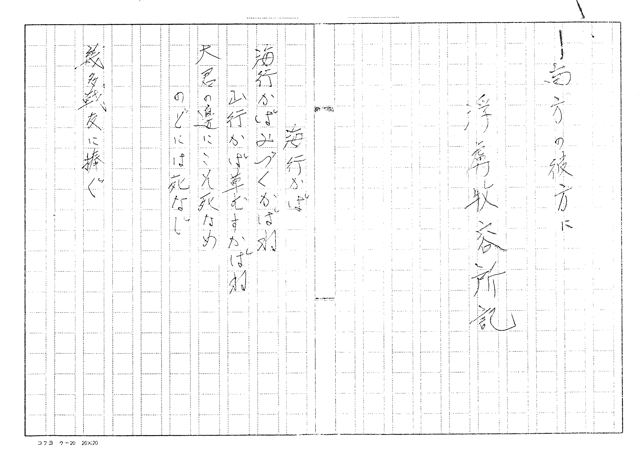 南方の彼方に
浮虜收容所記
海行かば
海行かばみづくかばね
山行かば草むすかばね
大君の邊にこそ死なめ
のどには死なじ
幾多戦友に捧ぐ
コクヨ ケー20 20×20